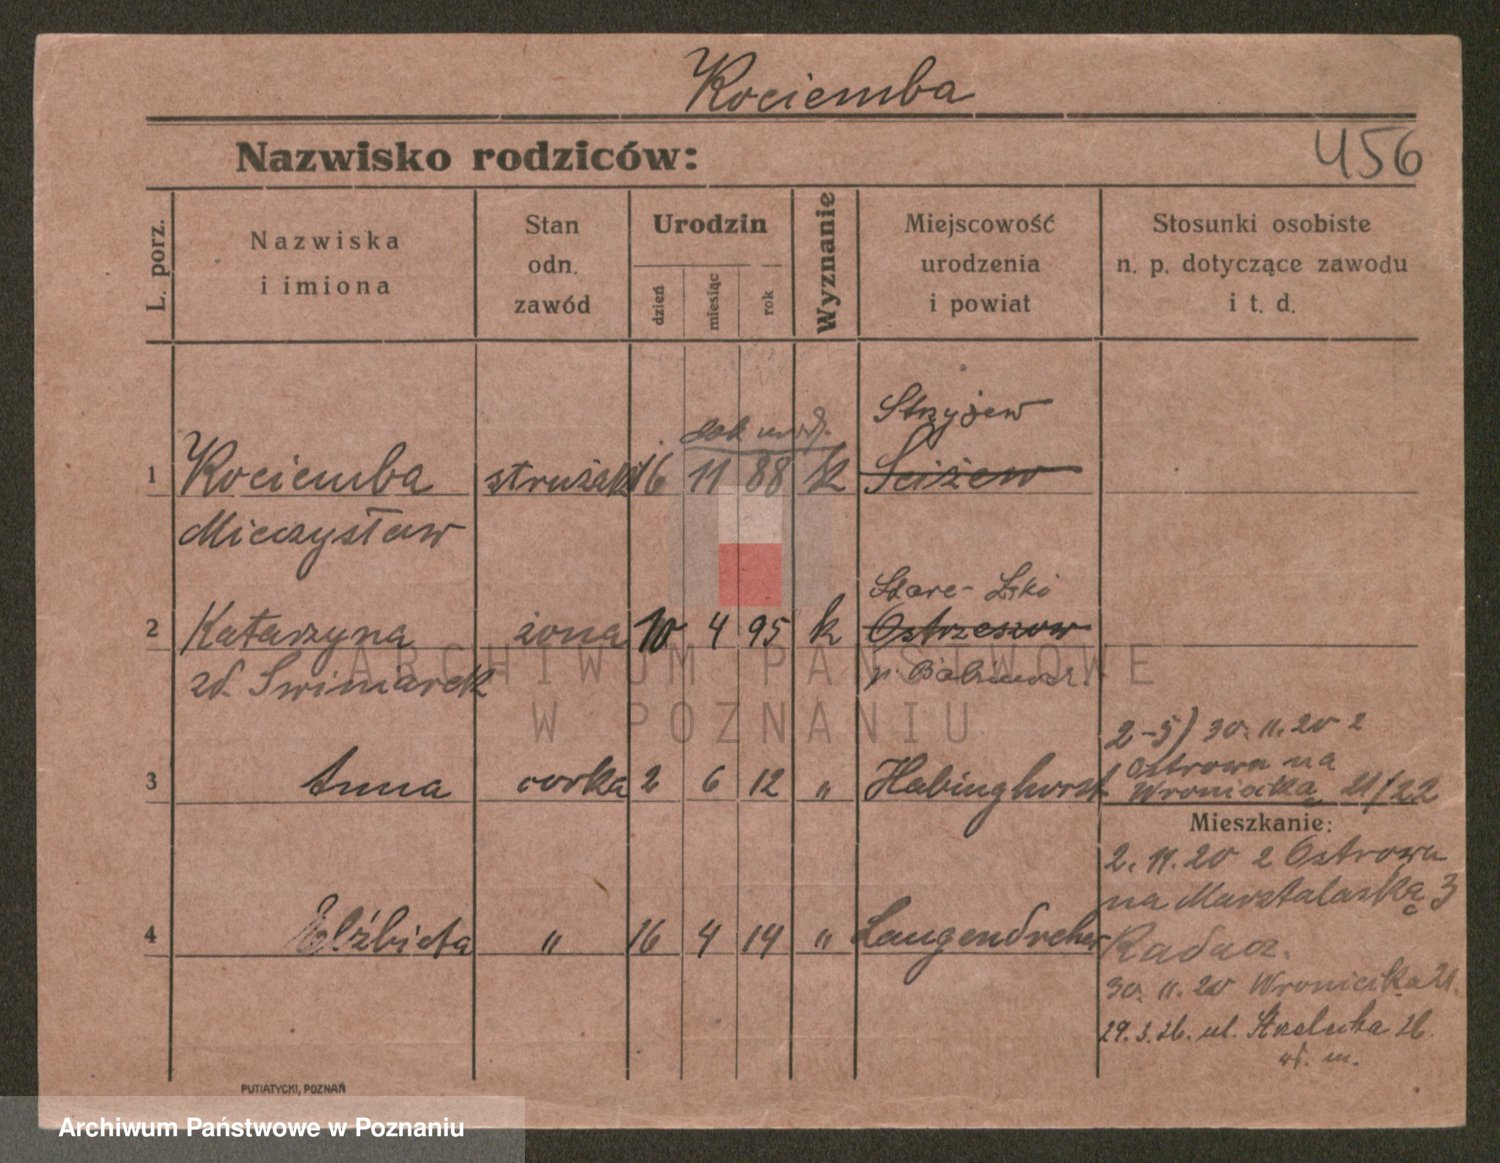 Kociemba
Nazwisko rodziców:
456
L. porz.
Nazwiska
i imiona
Stan
odn.
zawód
Urodzin
dzień
miesiąc
rok
Wyznanie
Miejscowość
urodzenia
i powiat
Stosunki osobiste
n. p. dotyczące zawodu
i t. d.
Strzyżew
1 Kociemba stružak 16 11 88 k Sciżew
Mieczysław
Stare-
2 Katarzyna żona 10 4 95 k Ostrzeszow
zd. Swimarek
2-5) 30.11.20 z
Ostrowa na
3 Anna corka 2 6 12 " Habinghorst Wroniecką 21/22
Mieszkanie:
2.11.20 z Ostrowa
na Marztalarską 3
4 Elżbieta " 16 4 14 " Langendreher
30.11.20 Wroniecka 21.
29.3.26. ul. Strzelecka 26.
PUTIATYCKI, POZNAŃ
ARCHIWUM PAŃSTWOWE
W POZNANIU
Archiwum Państwowe w Poznaniu